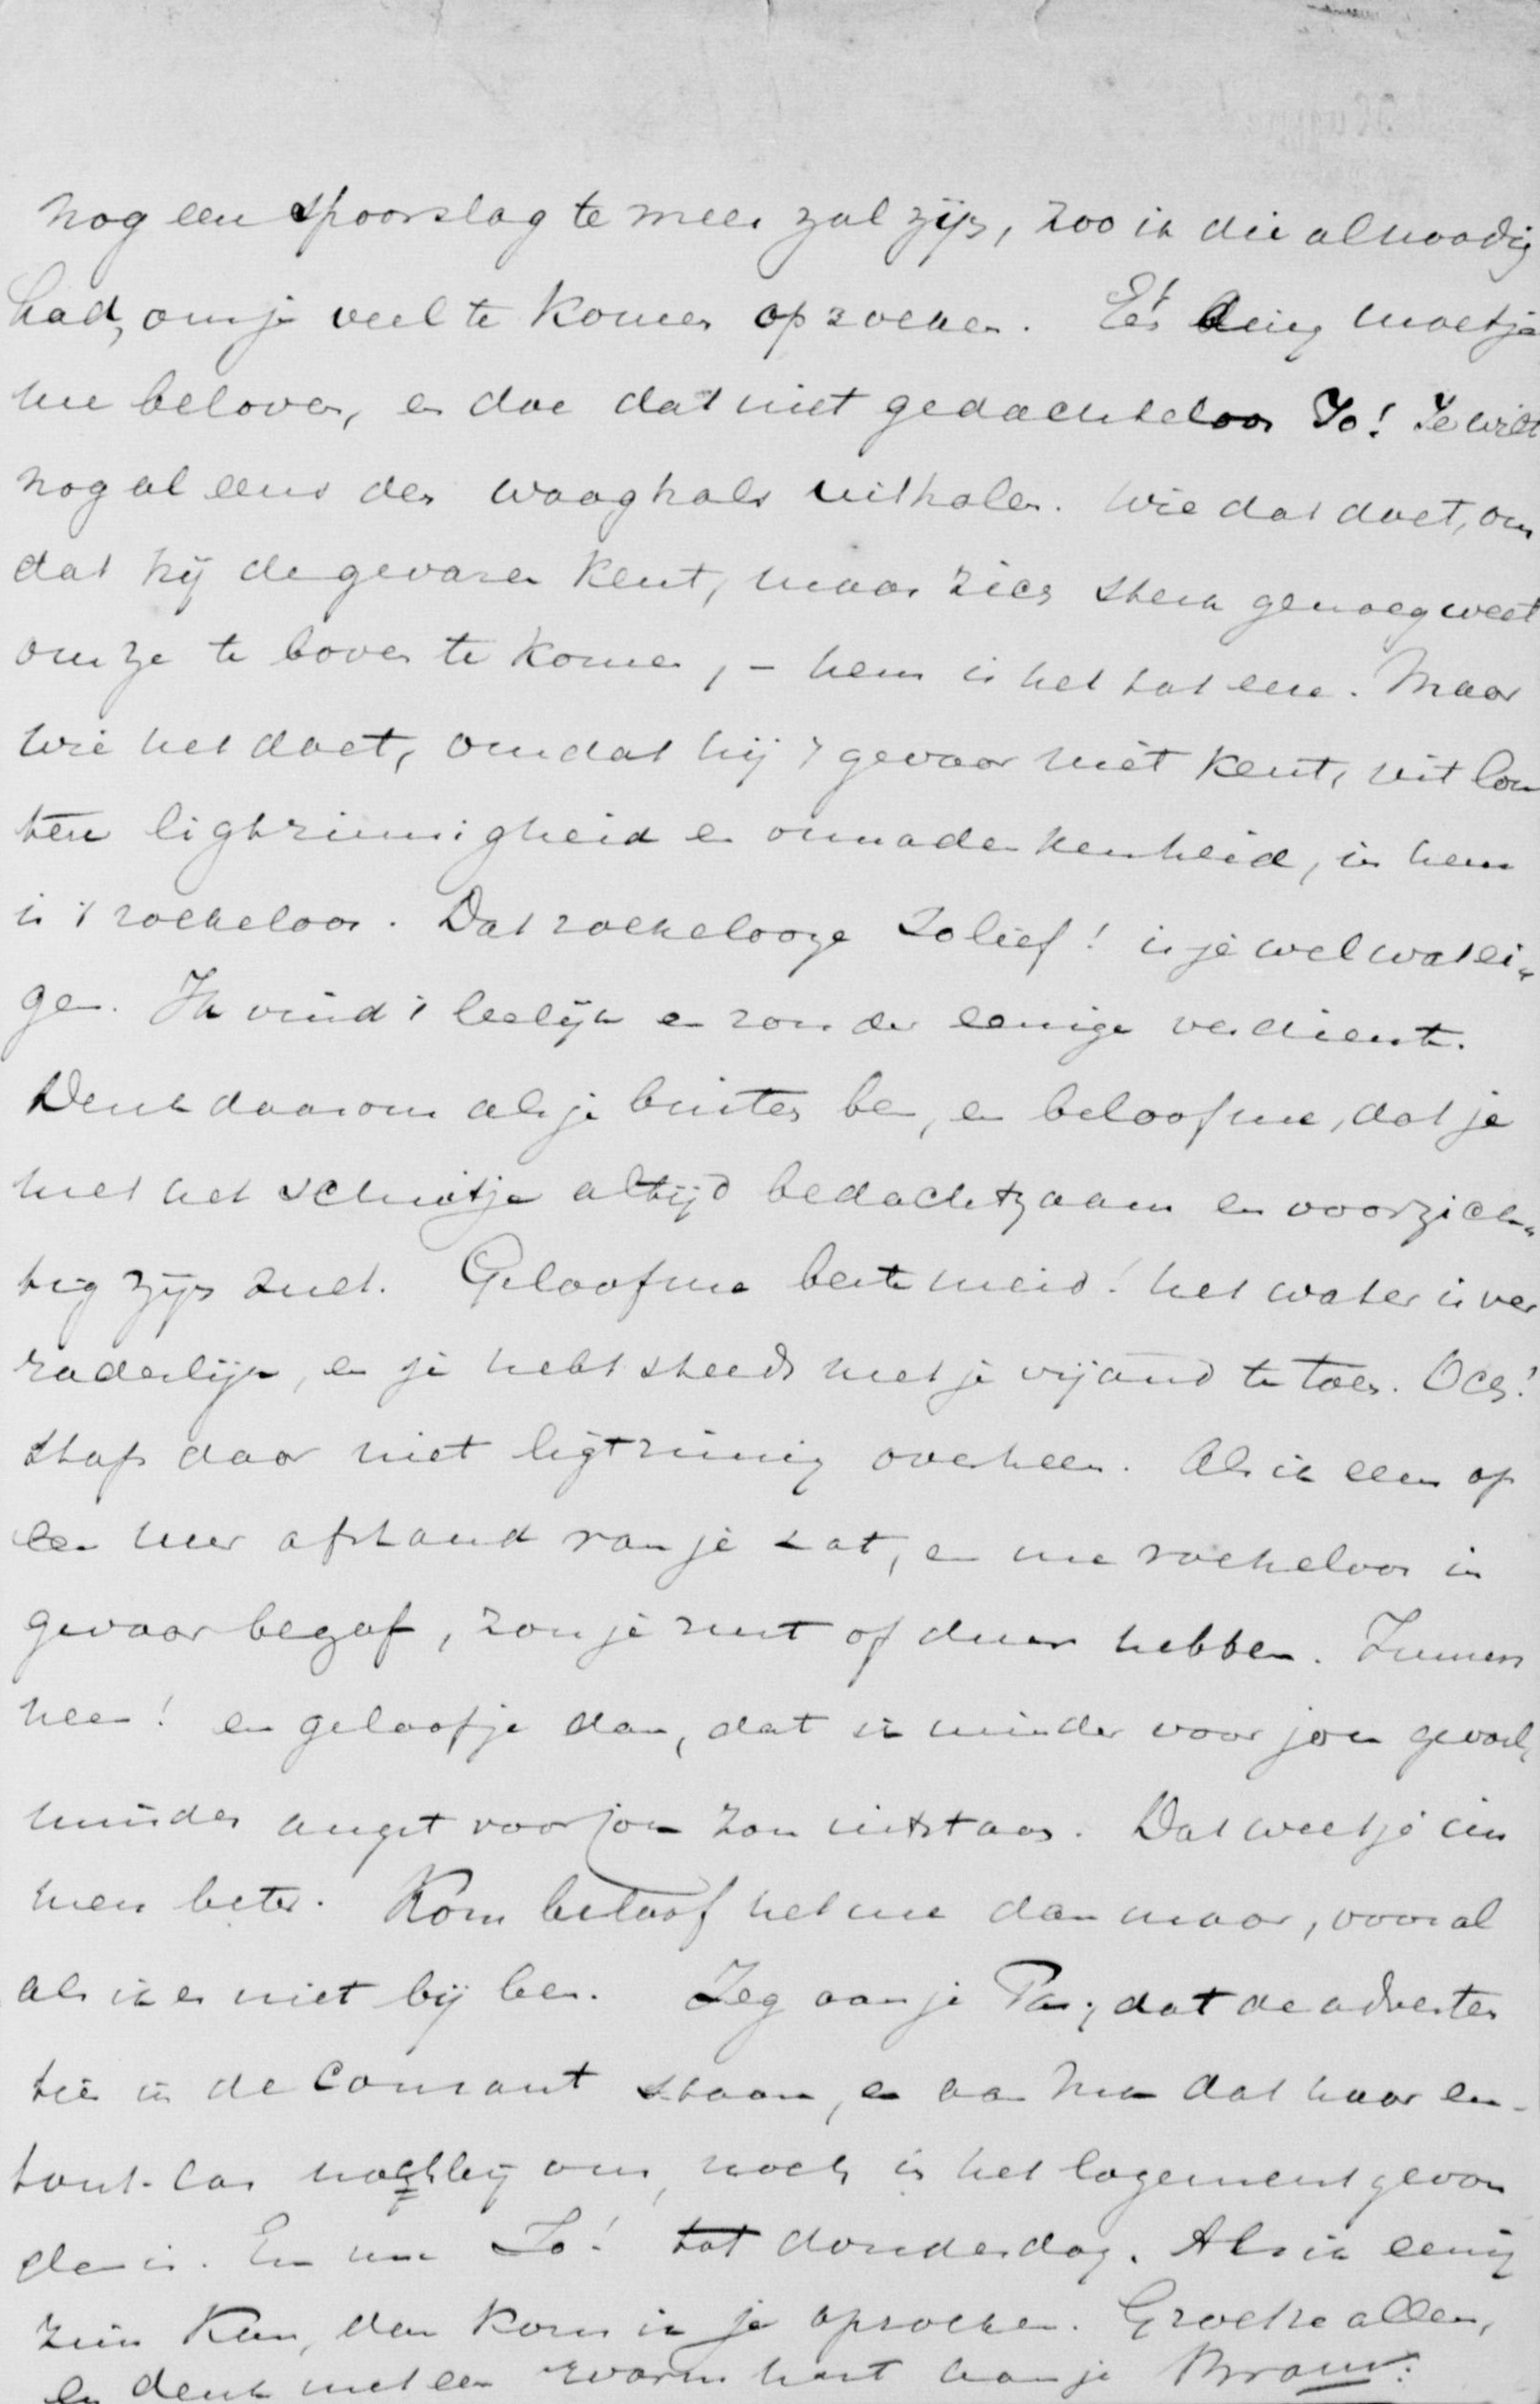 nog een spoorslag te meer zal zijn, zoo ik die al noodig
had, om je veel te komen opzoeken. Eén ding moet je
me beloven, en doe dat niet gedachteloos Jo! Je wilt
nog al eens den waaghals uithalen. Wie dat doet, om
dat hij de gevaren kent, maar zich sterk genoeg weet
om ze te boven te komen, – hem is het tot eere. Maar
wie het doet, omdat hij 't gevaar niet kent, uit lou
tere ligtzinnigheid en onnadenkenheid, in hem
is 't roekeloos. Dat roekelooze Jolief! is je wel wat ei„
gen. Ik vind 't leelijk en zonder eenige verdienste.
Denk daarom als je buiten ben, en beloof me, dat je
met het schuitje altijd bedachtzaam en voorzich„
tig zijn zult. Geloof me beste meid! het water is ver
raderlijk, en je hebt steeds met je vijand te doen. Och!
stap daar niet ligtzinnig overheen. Als ik eens op
een uur afstand van je zat, en me roekeloos in
gevaar begaf, zou je rust of duur hebben. Immers
neen! en geloof je dan, dat ik minder voor jou gevoel,
minder angst voor jou zou uitstaan. Dat weet je im
mers beter. Kom beloof het me dan maar, vooral
als ik er niet bij ben. Zeg aan je Pa, dat de adverten
tie in de Courant staan, en aan Ma dat haar en-
tout-cas noch bij ons, noch in het logement gevon
den is. En nu Jo! tot donderdag. Als ik eenig
zins kan, dan kom ik je opzoeken. Groet ze allen,
en denk met een warm hart aan je Bram.